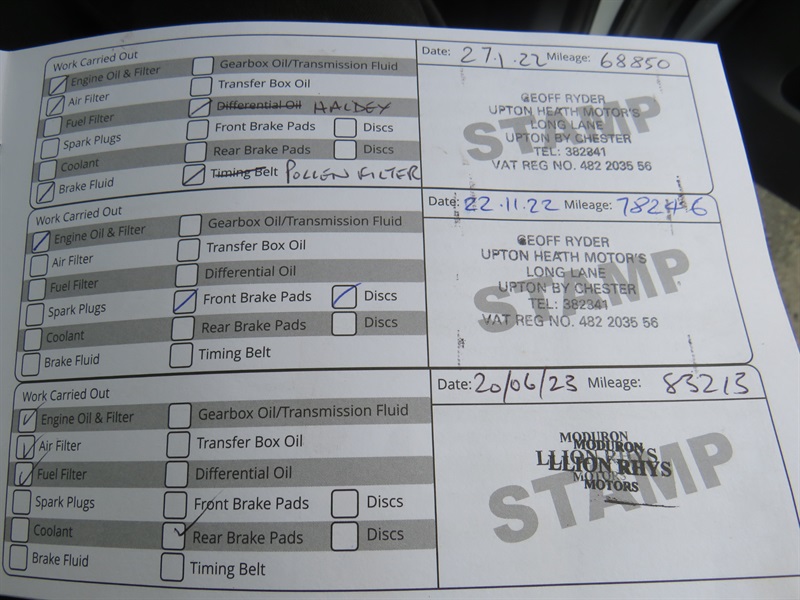 Work Carried Out
Engine Oil & Filter
Air Filter
Fuel Filter
Spark Plugs
Coolant
Brake Fluid
Gearbox Oil/Transmission Fluid
Transfer Box Oil
Differential Oil HALDEX
Front Brake Pads Discs
Rear Brake Pads Discs
Timing Belt POLLEN FILTER
Date: 27.1.22 Mileage: 68850
STAMP
GEOFF RYDER
UPTON HEATH MOTOR'S
LONG LANE
UPTON BY CHESTER
TEL: 382341
VAT REG NO. 482 2035 56
Work Carried Out
Engine Oil & Filter
Air Filter
Fuel Filter
Spark Plugs
Coolant
Brake Fluid
Gearbox Oil/Transmission Fluid
Transfer Box Oil
Differential Oil
Front Brake Pads Discs
Rear Brake Pads Discs
Timing Belt
Date: 22.11.22 Mileage: 78246
STAMP
GEOFF RYDER
UPTON HEATH MOTOR'S
LONG LANE
UPTON BY CHESTER
TEL: 382341
VAT REG NO. 482 2035 56
Work Carried Out
Engine Oil & Filter
Air Filter
Fuel Filter
Spark Plugs
Coolant
Brake Fluid
Gearbox Oil/Transmission Fluid
Transfer Box Oil
Differential Oil
Front Brake Pads Discs
Rear Brake Pads Discs
Timing Belt
Date: 20/06/23 Mileage: 83213
STAMP
MODURON
MODURON
LLION RHYS
LLION RHYS
MOTORS
MOTORS